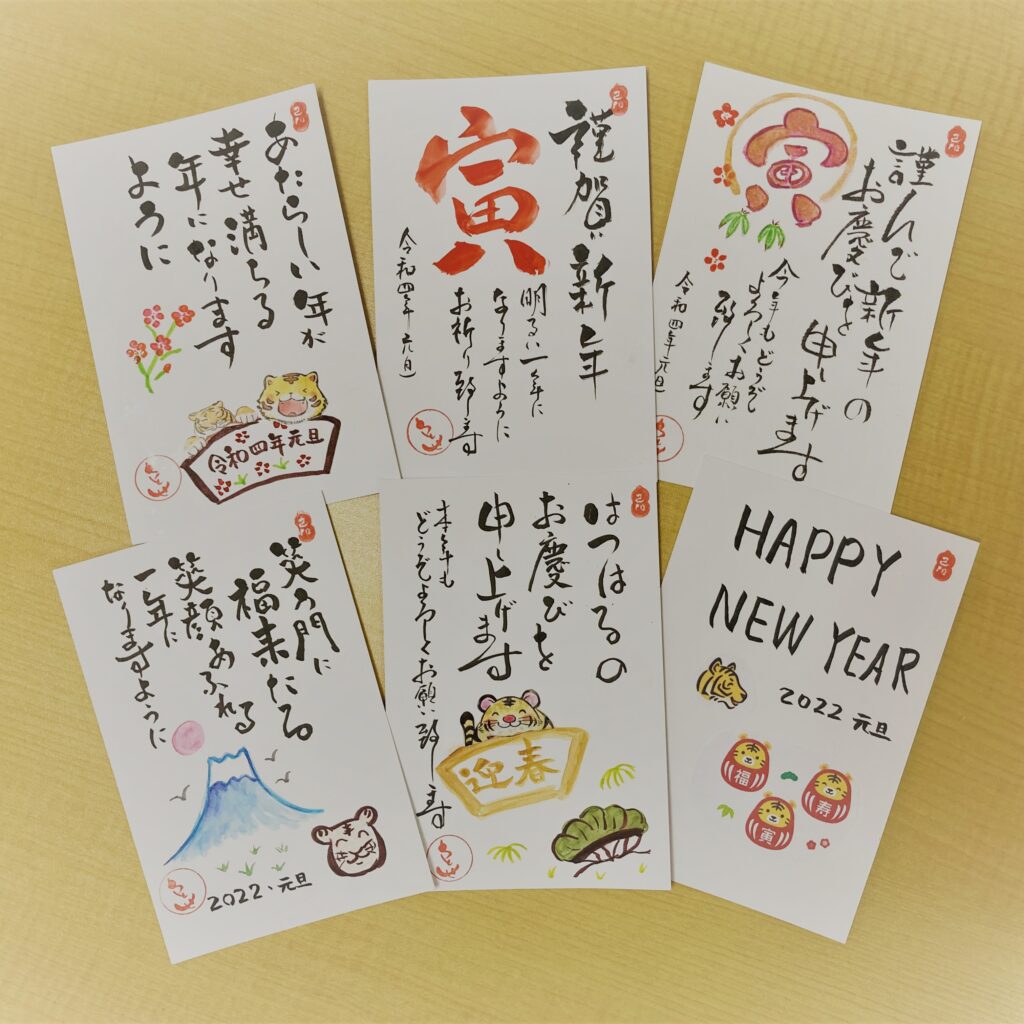 あたらしい年が
幸せ満ちる
年になります
ように
令和四年元旦
謹賀新年
寅
明るい一年に
なりますように
お祈り致します
令和四年元旦
謹んで新年の
お慶びを
申し上げます
寅
今年もどうぞ
よろしくお願い
致します
令和四年元旦
笑う門に
福来たる
笑顔あふれる
一年に
なりますように
2022.元旦
はつはるの
お慶びを
申し上げます
本年も
どうぞよろしくお願い致します
迎春
HAPPY
NEW YEAR
2022 元旦
福
寿
寅